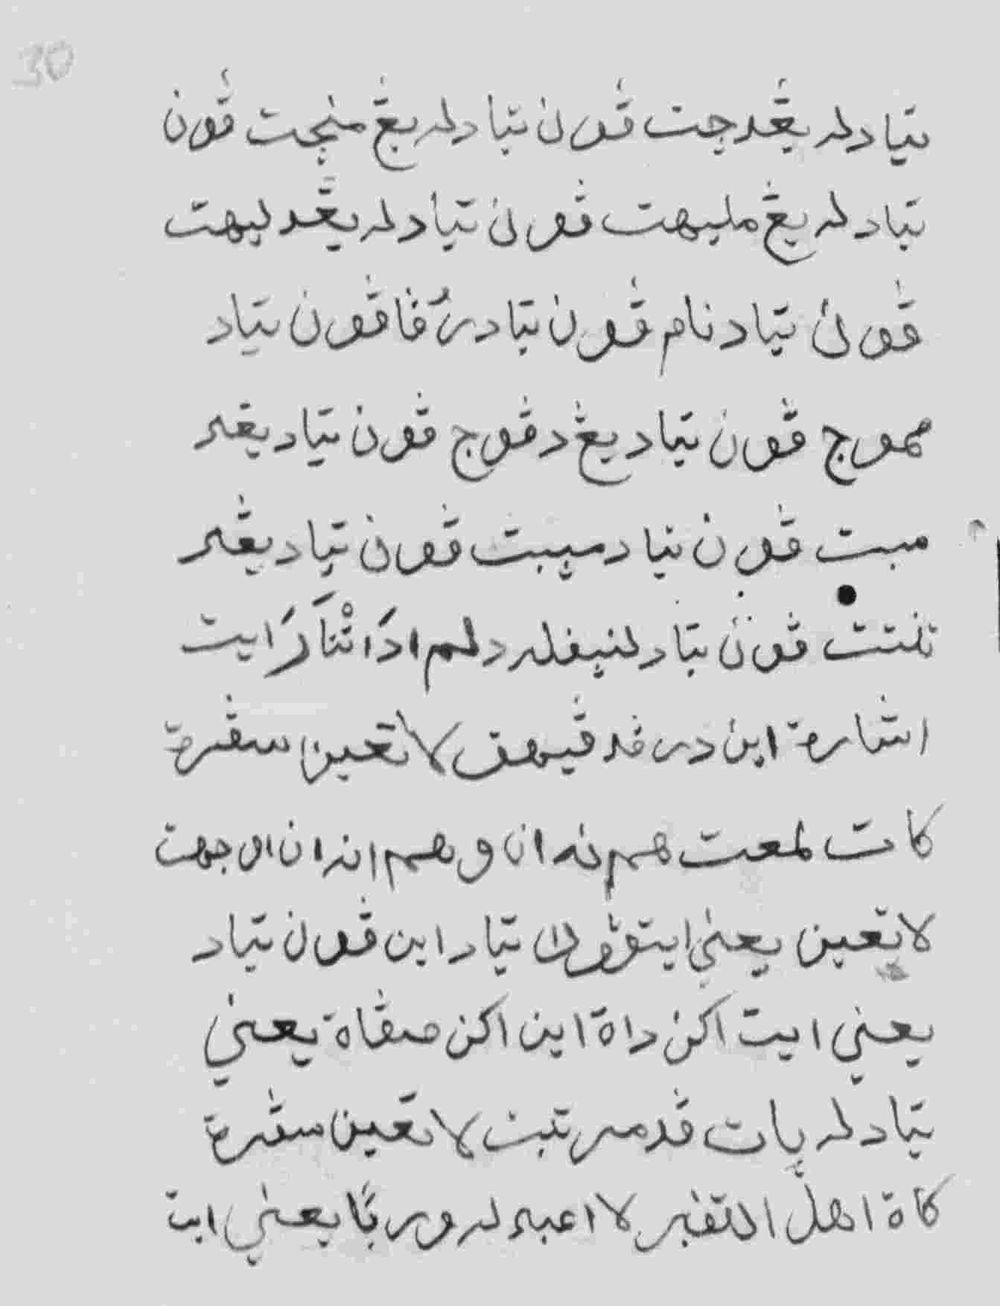 30
تيادله يڠدچت ڤون تيادله يڠ منچت ڤون
تيادله يڠ مليهت ڤون تيادله يڠدليهت
ڤون تياد نام ڤون تياد رڤا ڤون تياد
مموج ڤون تياد يڠ دڤوج ڤون تياد يڠد
سبت ڤون تياد ميبت ڤون تياد يڠد
تنتت ڤون تياد لنيڤله دلم اد اتارا ايت
اشارة اين در ڤد ڤيهق لا تعين سڤرة
كات لمعت هم نه ان وهم اندان ال وجهت
لا تعين يعني ايتڤون تياد اين ڤون تياد
يعني ايت اكن داة اين اكن صڤاة يعني
تيادله بات ڤد مرتبت لا تعين سڤرة
كاة اهل التفبر لا اعبد له وربا يعني ايت